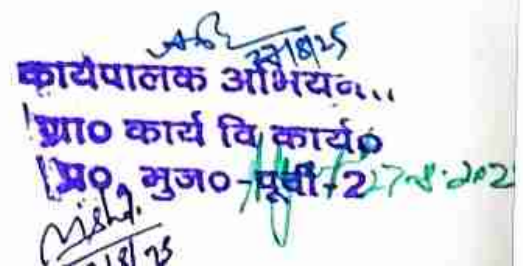 27/8/25
कार्यपालक अभियन..
ग्रा० कार्य वि कार्य०
प्र० मुज०-पूर्वी-2 27-8-202